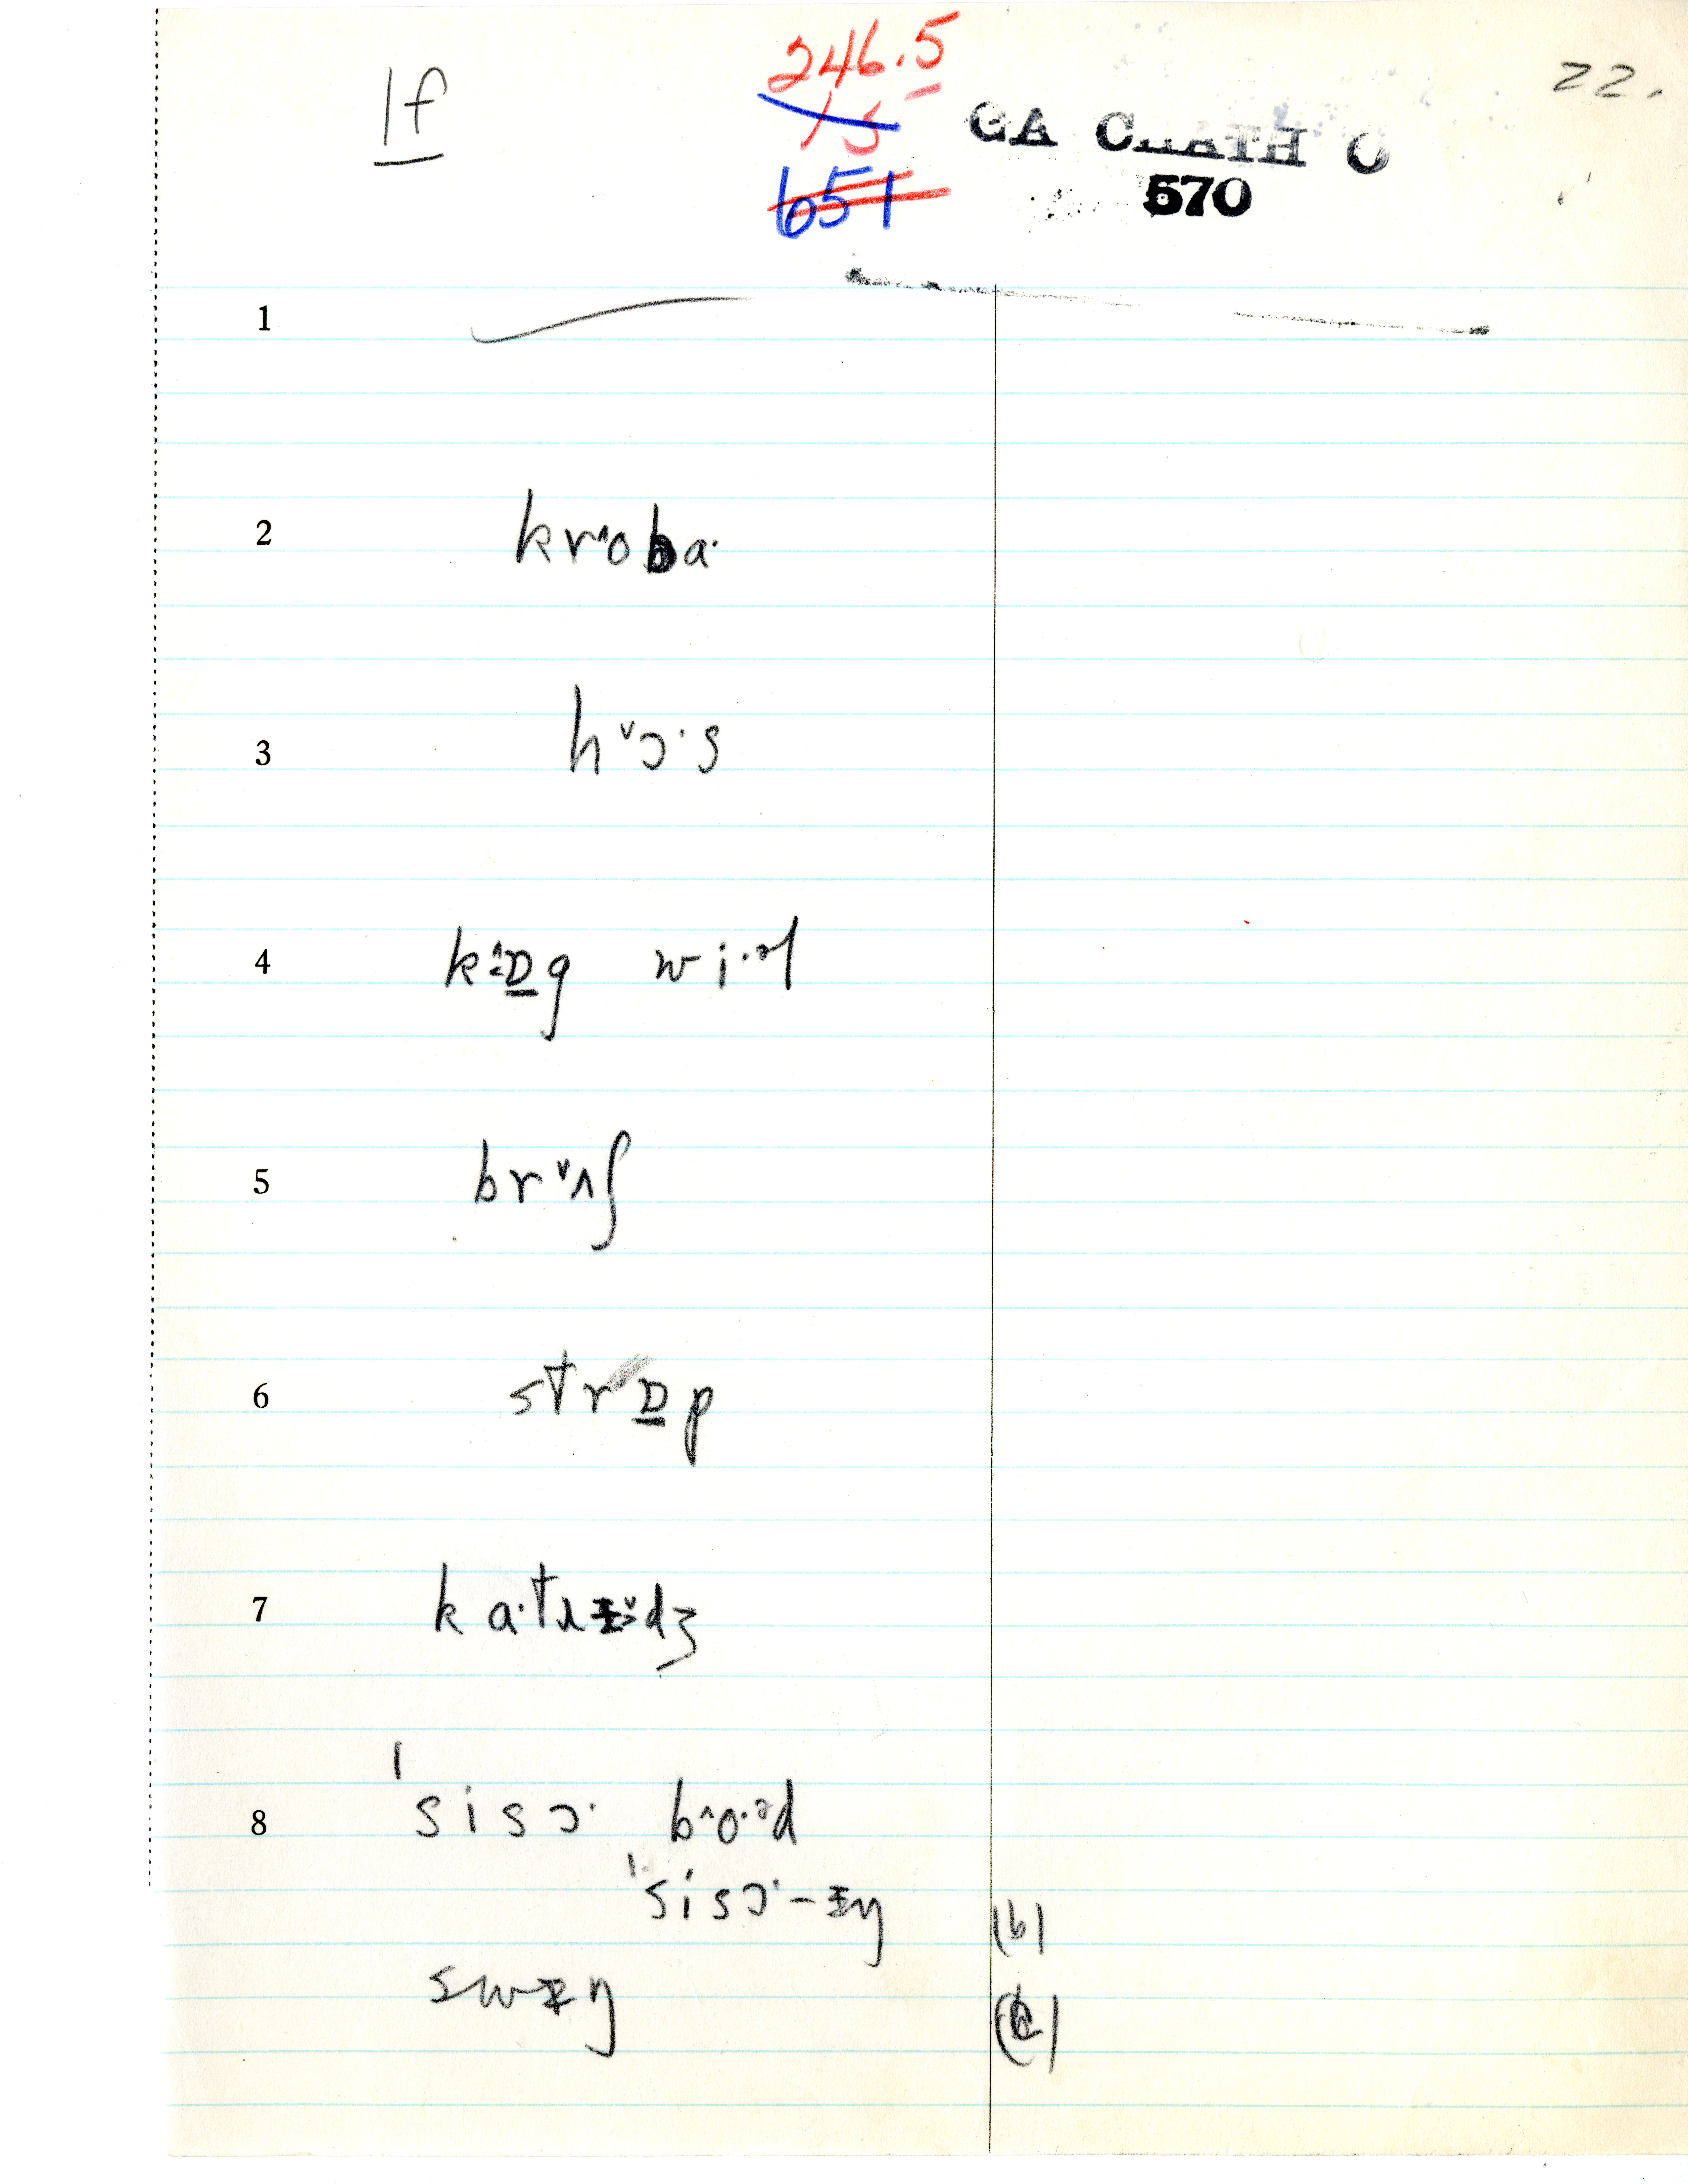 1f
246.5
15
651
GA CHATH
570
22.
1
2 kr^oba·
3 h˅ɔ·s
4 k^ɒ̲g wi·ᵊl
5 br˅ʌʃ
6 strɒ̲p
7
8 ˈsisɔ· b^o·ᵊd
ˈsisɔ·-ɪŋ (b)
swɪŋ (c)